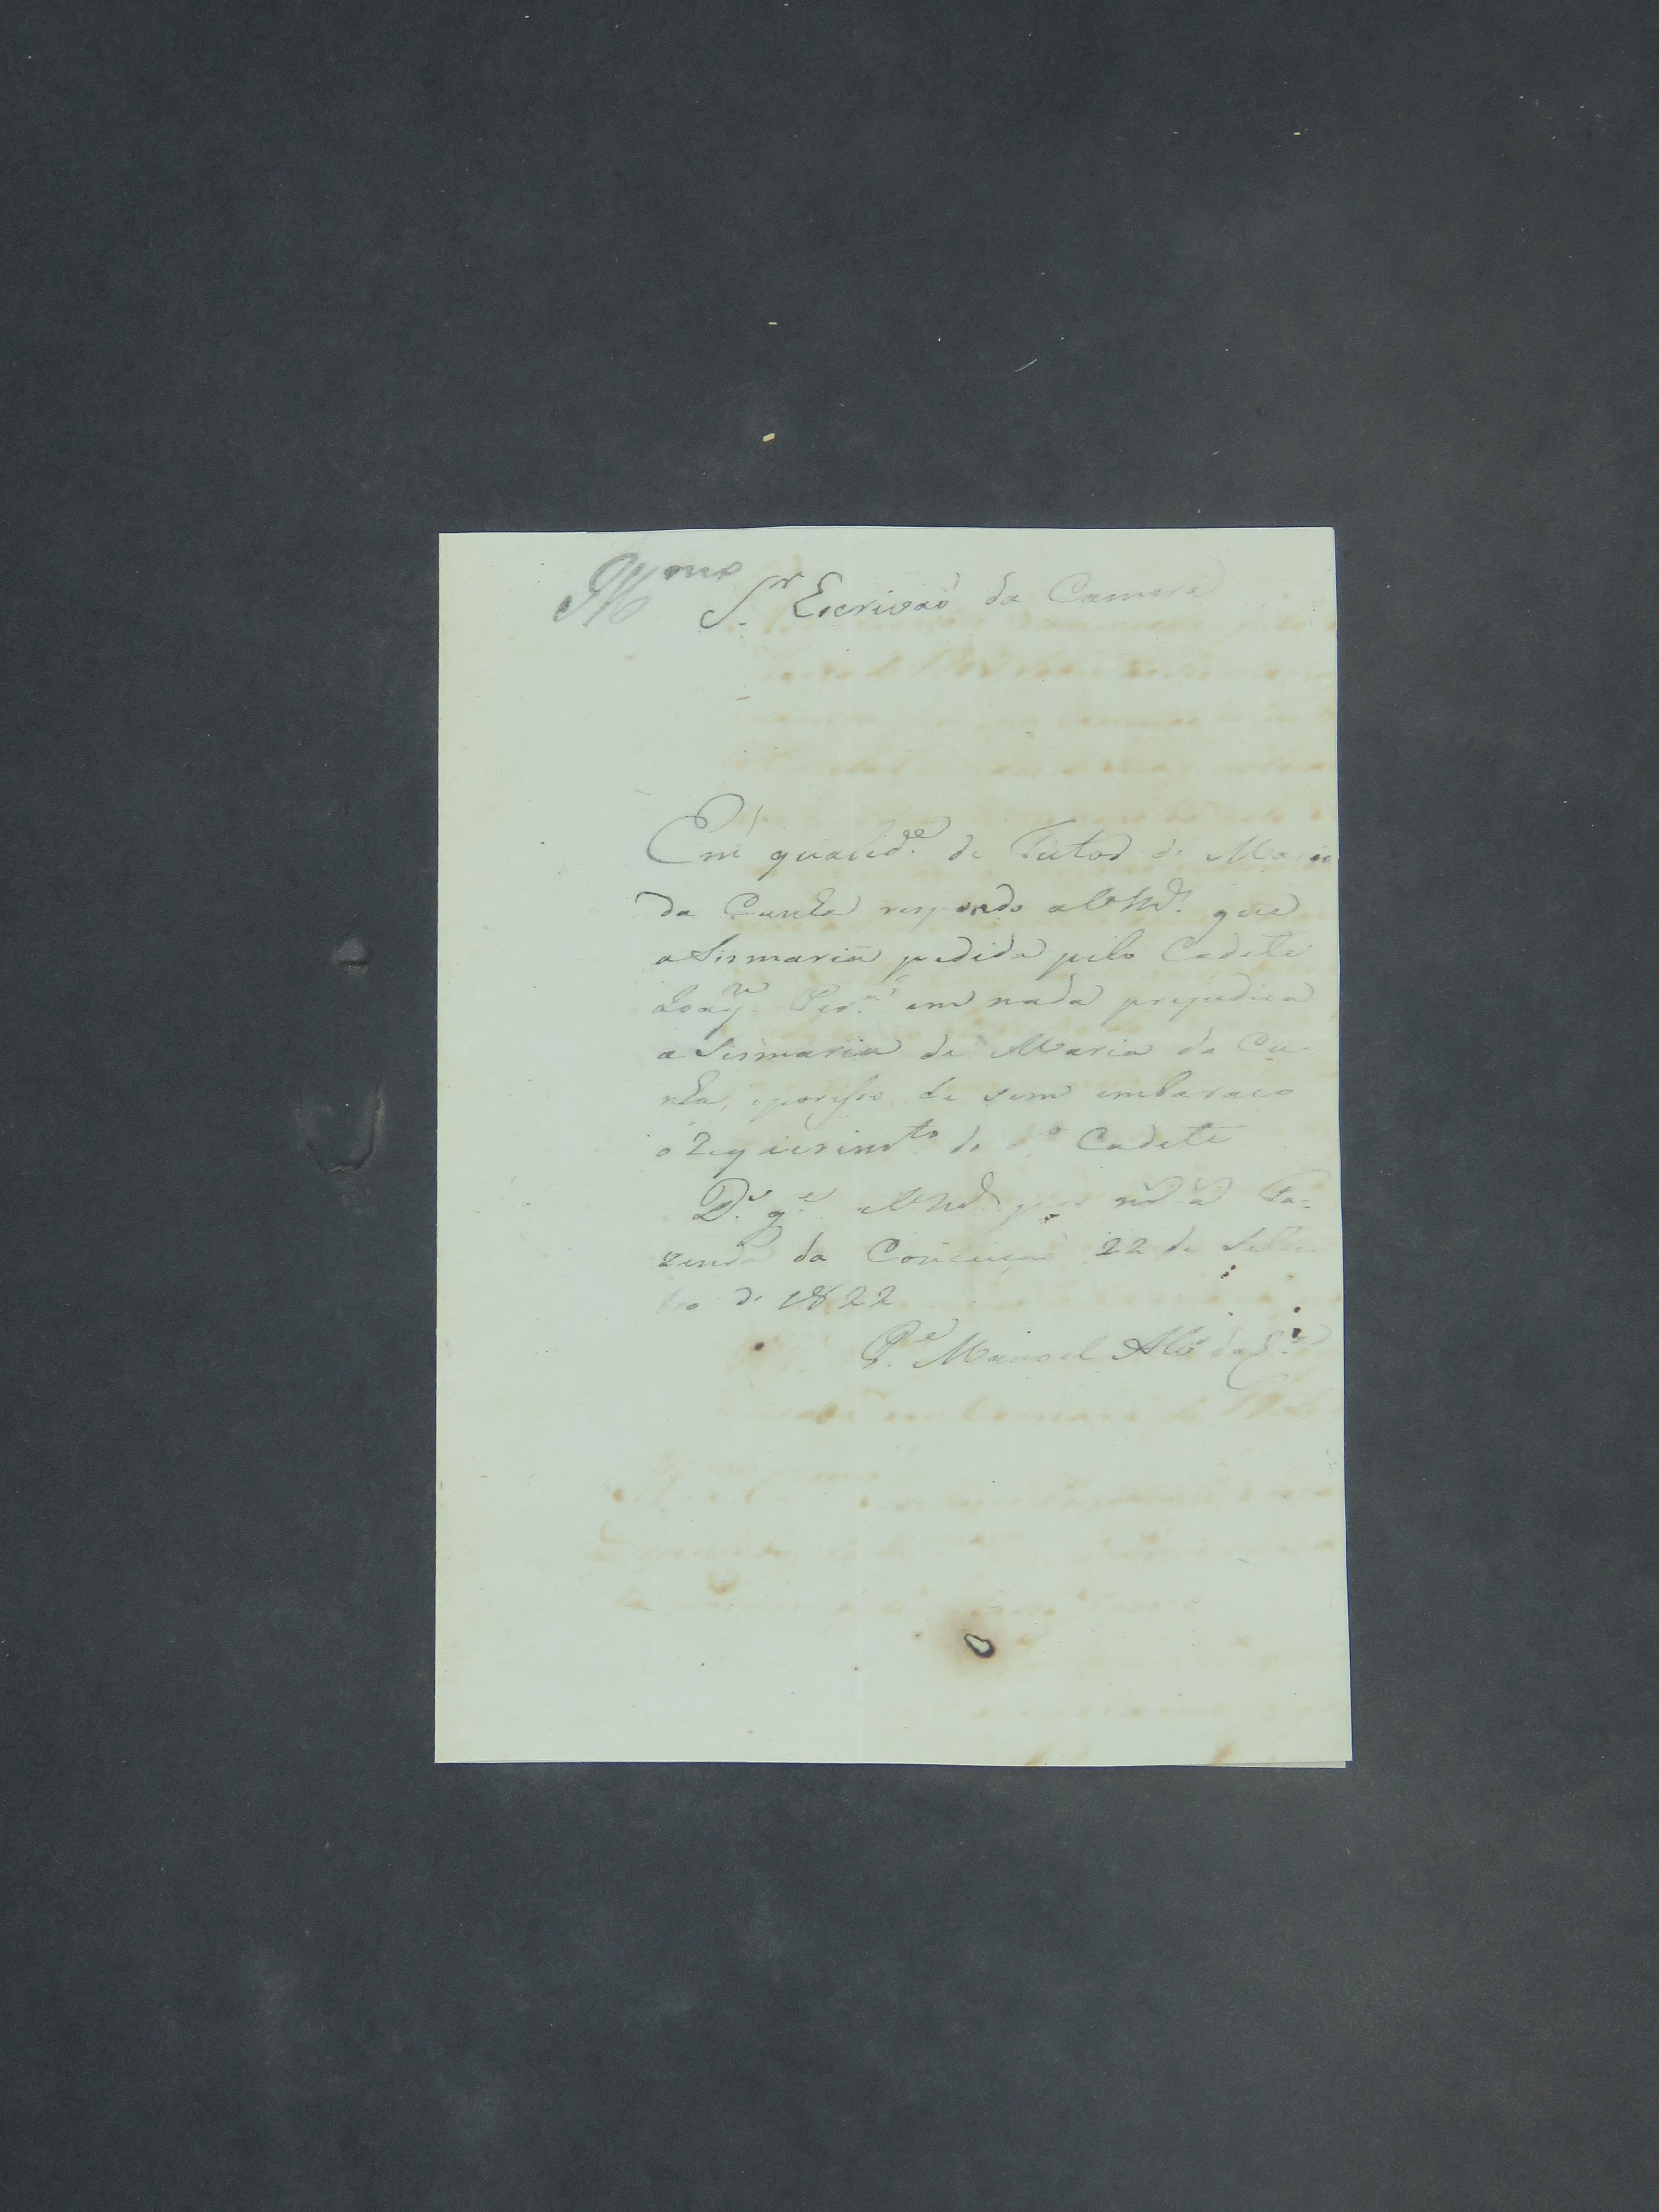 Illmo Sr. Escrivaõ da Camera
Em qualidde. de Tutor de Maria
da Cunha respondo a VMce. que
a Sismaria pedida pelo Cadete
Joaqm. Perª. em nada prejudica
a Sismaria de Maria da Cu
nha, eporisso de sem embaraco
o Requerimto do dº Cadete
Ds. ge. a VMce por Fa-
zenda da Conceiçaõ 22 de Setem
bro de 1822
Pe. Manoel da Sª